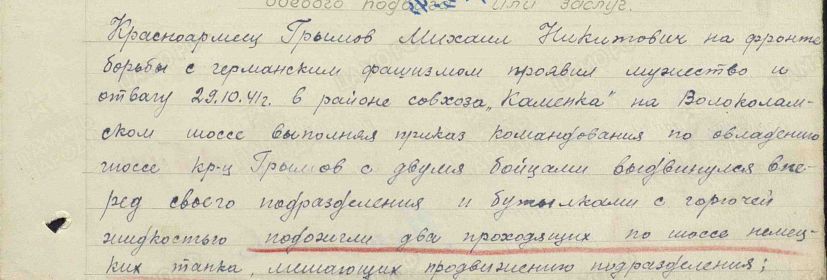 боевого подвига или заслуг.
Красноармеец Грымов Михаил Никитович на фронте
борьбы с германским фашизмом проявил мужество и
отвагу 29.10.41г. в районе совхоза „Каменка" на Волоколам-
ском шоссе выполняя приказ командования по овладению
шоссе кр-ц Грымов с двумя бойцами выдвинулся впе-
ред своего подразделения и бутылками с горючей
жидкостью подожгли два проходящих по шоссе немец-
ких танка, мешающих продвижению подразделения;